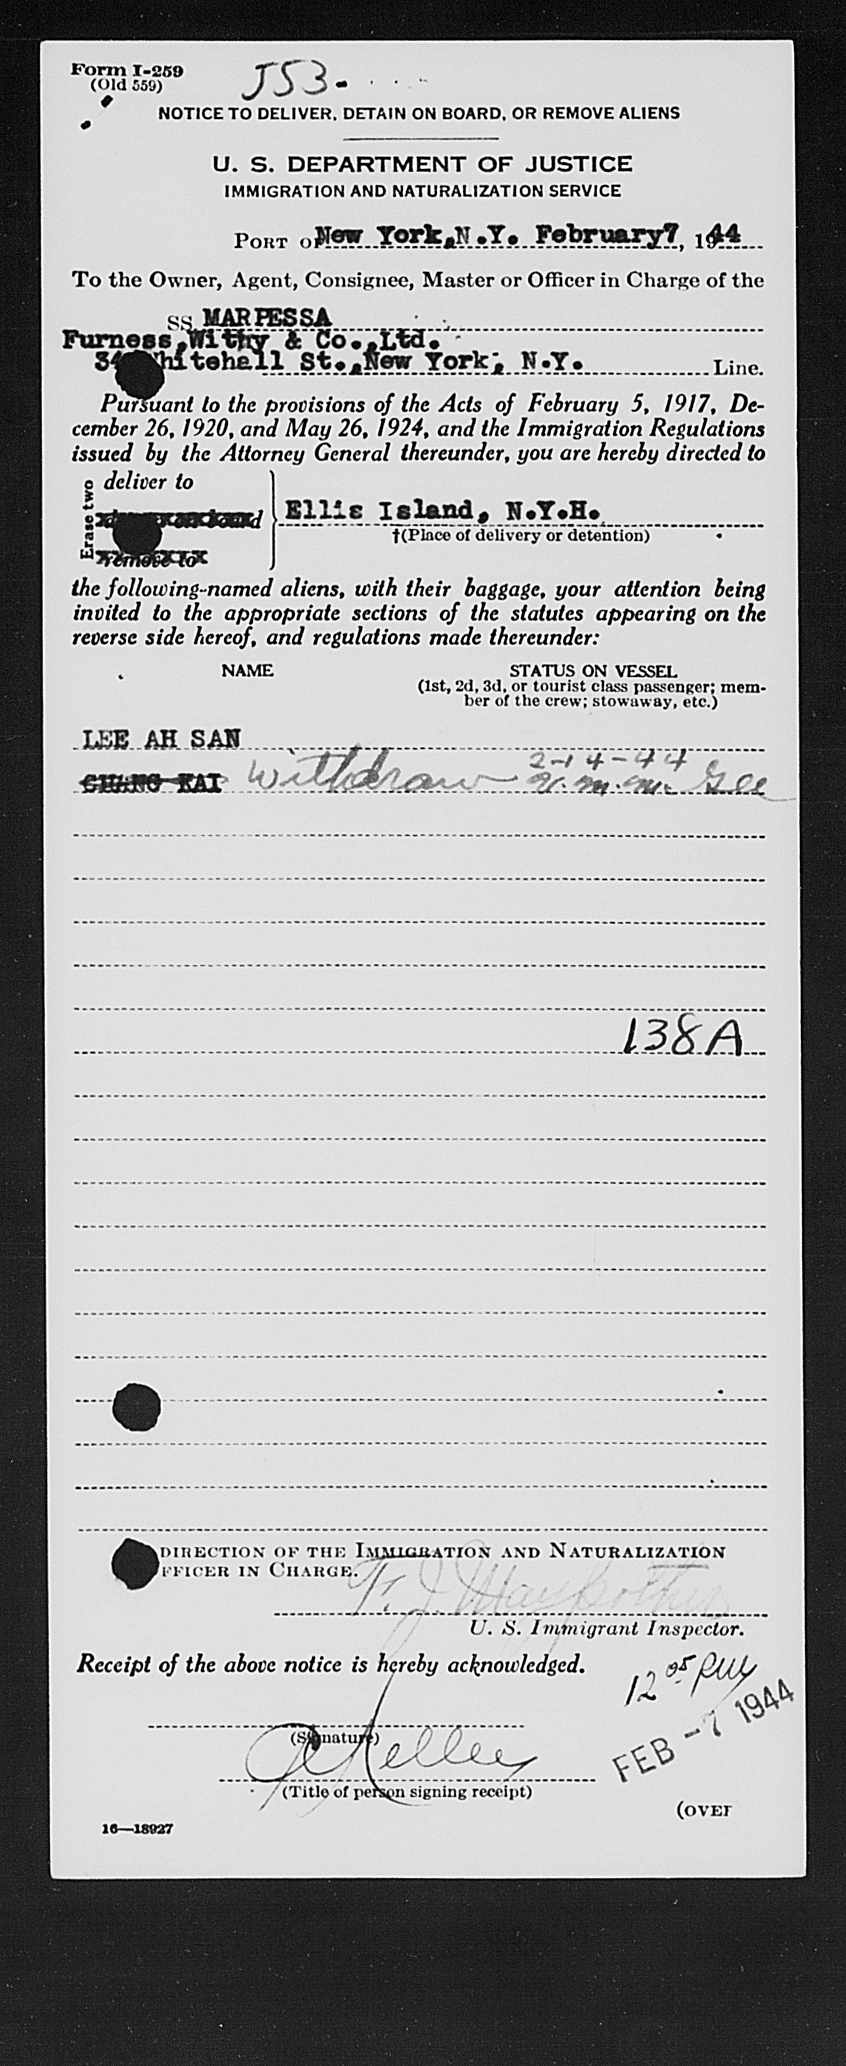 Form I-259
(Old 559)
J53-
NOTICE TO DELIVER, DETAIN ON BOARD, OR REMOVE ALIENS
U. S. DEPARTMENT OF JUSTICE
IMMIGRATION AND NATURALIZATION SERVICE
PORT OF New York, N.Y. February 7, 1944
To the Owner, Agent, Consignee, Master or Officer in Charge of the
SS MARPESSA
Furness, Withy & Co., Ltd.
34 Whitehall St., New York, N.Y. Line.
Pursuant to the provisions of the Acts of February 5, 1917, De-
cember 26, 1920, and May 26, 1924, and the Immigration Regulations
issued by the Attorney General thereunder, you are hereby directed to
Erase two
deliver to
remove to
Ellis Island, N.Y.H.
†(Place of delivery or detention)
the following-named aliens, with their baggage, your attention being
invited to the appropriate sections of the statutes appearing on the
reverse side hereof, and regulations made thereunder:
NAME STATUS ON VESSEL
(1st, 2d, 3d, or tourist class passenger; mem-
ber of the crew; stowaway, etc.)
LEE AH SAN
2-14-44
CHANG KAI Withdrawn
138A
DIRECTION OF THE IMMIGRATION AND NATURALIZATION
FFICER IN CHARGE.
U. S. Immigrant Inspector.
Receipt of the above notice is hereby acknowledged.
12 05 PM
FEB -7 1944
(Signature)
Kelley
(Title of person signing receipt)
(OVER
16—18927